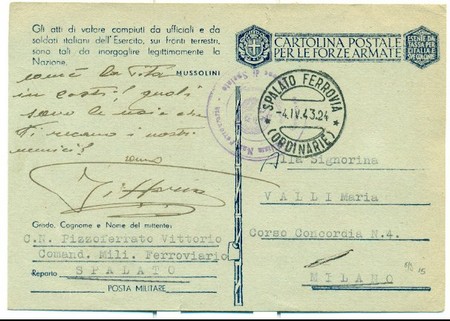 Gli atti di valore compiuti da ufficiali e da
soldati italiani dell'Esercito, sui fronti terrestri,
sono tali da inorgoglire legittimamente la
Nazione.
MUSSOLINI
com'è la vita
in costì! quali
sono le
Ti recano i nostri
nemici!
Vittorio
Grado, Cognome e Nome del mittente:
C.N. Pizzoferrato Vittorio
Comand. Mili. Ferroviario
Reparto SPALATO
POSTA MILITARE
CARTOLINA POSTALE
PER LE FORZE ARMATE
ESENTE DA
TASSA PER
L'ITALIA E
SPEDIZIONE
SPALATO FERROVIA
-4.IV.43.24
(ORDINARIE)
Alla Signorina
VALLI Maria
Corso Concordia N.4.
MILANO
15